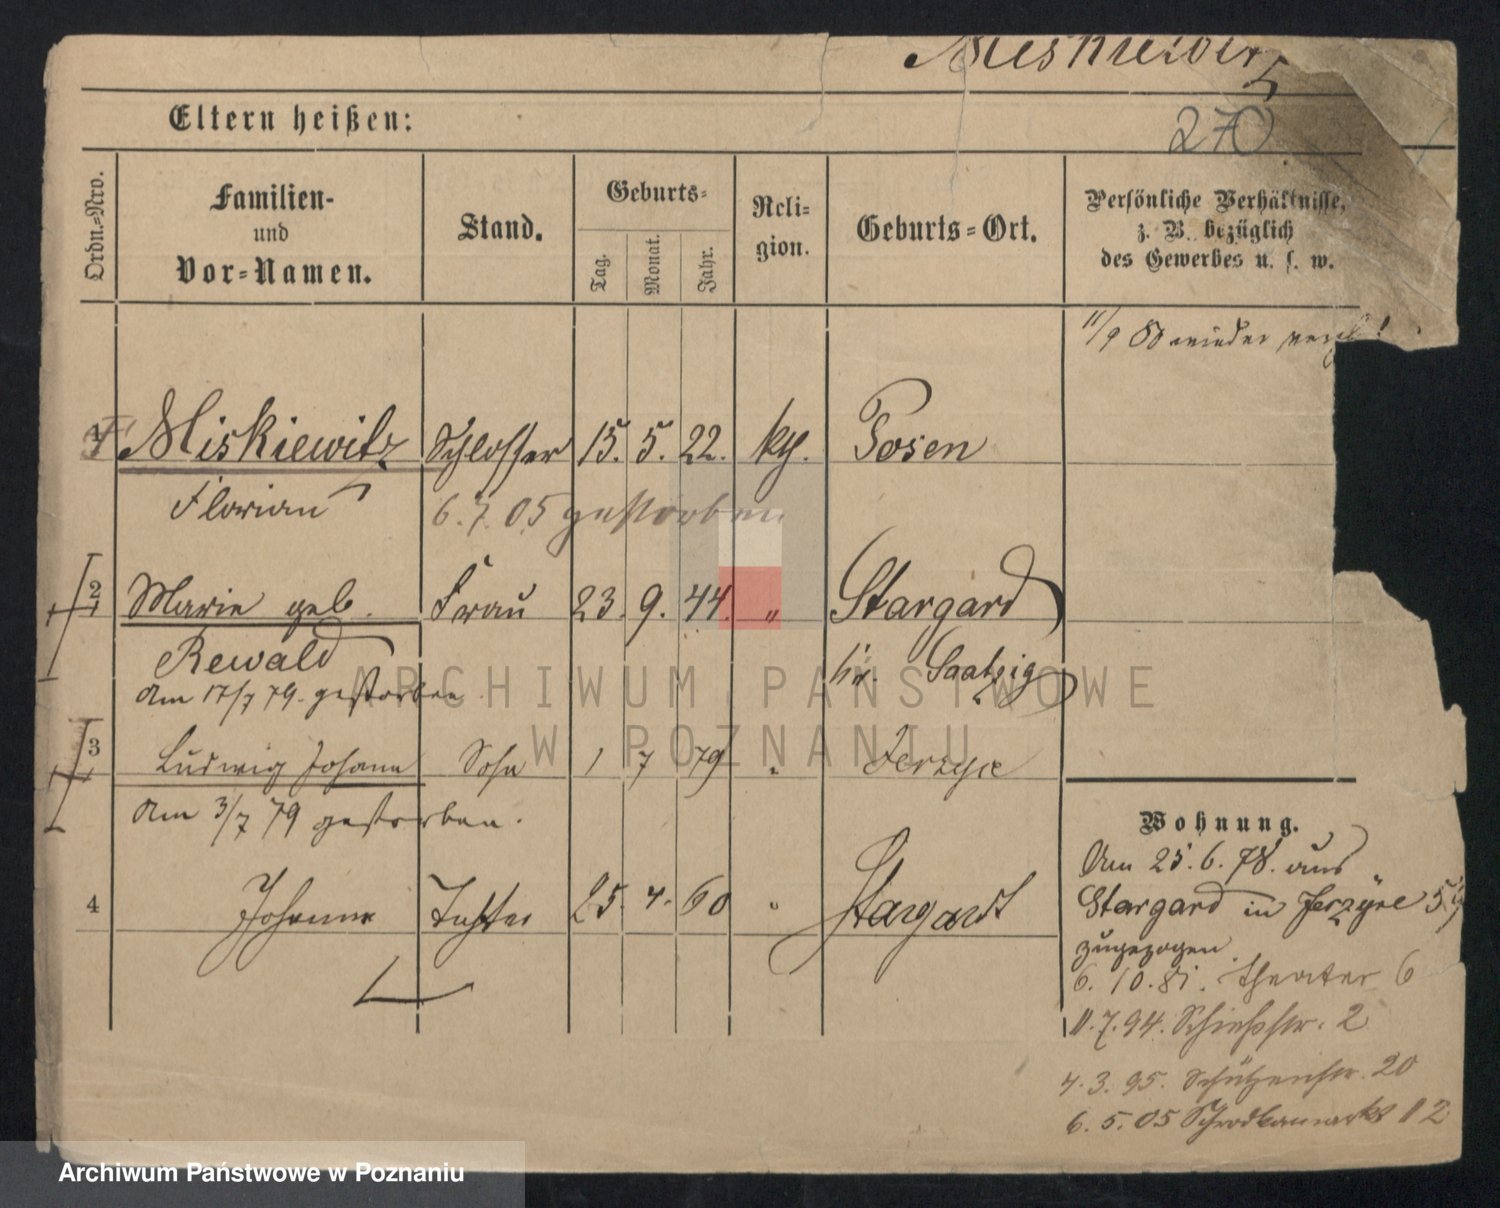 Miskiewitz
270
Eltern heißen:
Ordn.-Nro.
Familien- und Vor-Namen.
Stand.
Geburts-
Tag.
Monat.
Jahr.
Reli-
gion.
Geburts-Ort.
Persönliche Verhältnisse,
z. B. bezüglich
des Gewerbes u. s. w.
11/9 wieder
1 Miskiewitz Schlosser 15. 5. 22. kth. Posen
Florian 6.7.05 gestorben
2 Marie geb. Frau 23. 9. 44. " Stargard
Rewald Kr. Saatzig
Am 17/7 79. gestorben
3 Ludwig Johann Sohn 1 7 79 " Jerzyce
Am 3/7 79 gestorben.
4 Johanna Tochter 25. 4. 60 " Stargardt
Wohnung.
Am 25.6.78. aus
Stargard in Jerzyce
zugezogen
6.10.81. Theater 6
11.7.94. Schießstr. 2
4.3.95. Schützenstr. 20
6.5.05 Schrodkamarkt 12
ARCHIWUM PAŃSTWOWE
W POZNANIU
Archiwum Państwowe w Poznaniu